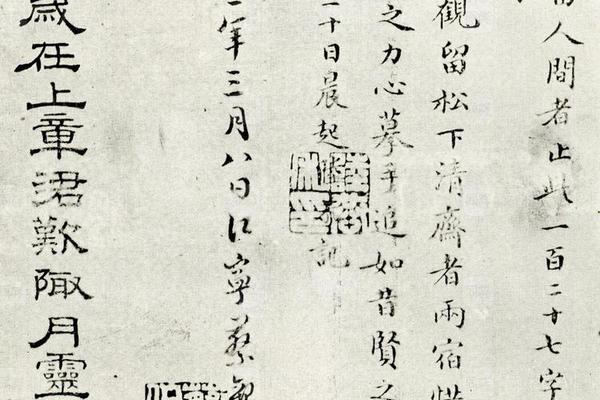 人間者止此一百二十七字
觀留松下清齋者兩宿惜
之力心摹手追如昔賢之
十日晨起記
年三月八日江寧蔡
歲在上章涒歎陬月靈